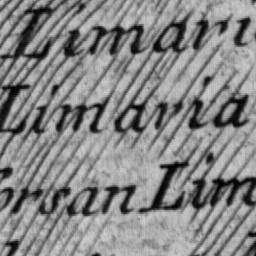 Limari
Limaria
orsan Lim